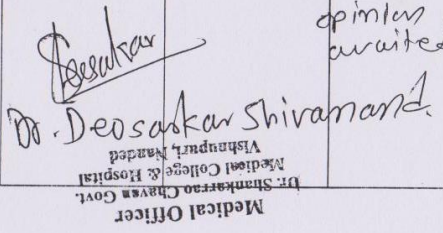 opinion
awaited
Deosarkar
Dr. Deosarkar Shivanand.
Medical Officer
Dr. Shankarrao Chavan Govt.
Medical College & Hospital
Vishnupuri, Nanded